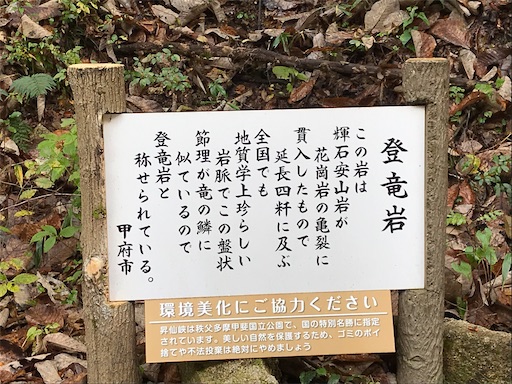 登竜岩
この岩は
輝石安山岩が
花崗岩の亀裂に
貫入したもので
延長四粁に及ぶ
全国でも
地質学上珍らしい
岩脈でこの盤状
節理が竜の鱗に
似ているので
登竜岩と
称せられている。
甲府市
環境美化にご協力ください
昇仙峡は秩父多摩甲斐国立公園で、国の特別名勝に指定
されています。美しい自然を保護するため、ゴミのポイ
捨てや不法投棄は絶対にやめましょう